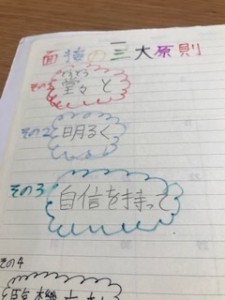 面接の三大原則
その1
堂々と
その2
明るく
その3
自信を持って
その4